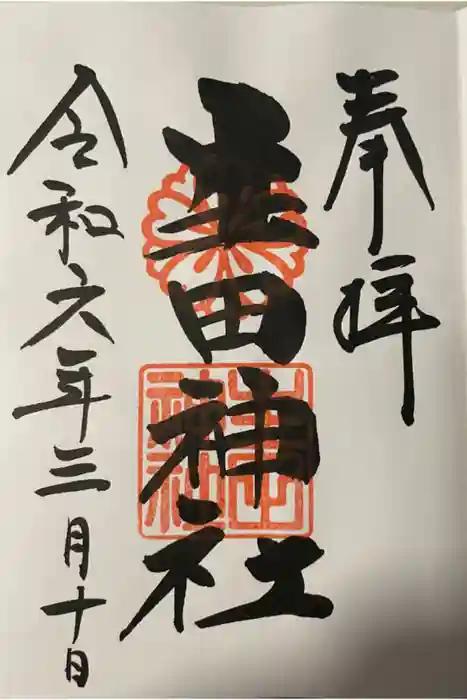 奉拝
生田神社
令和六年三月十日